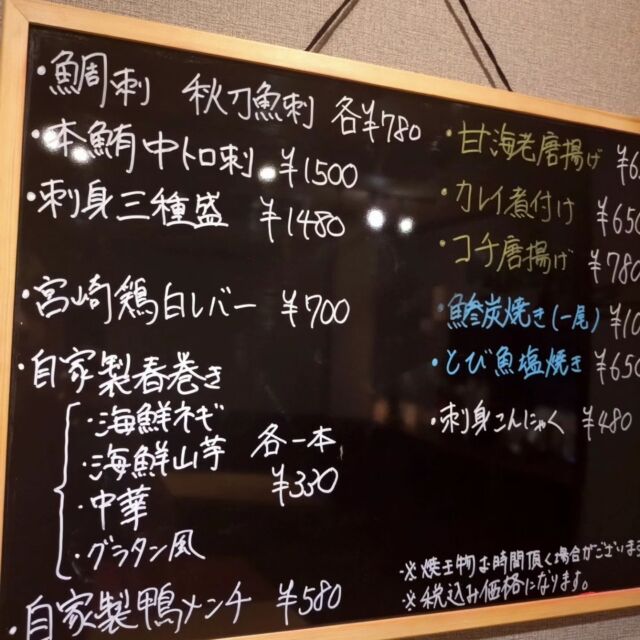 ・鯛刺 秋刀魚刺 各¥780
・本鮪中トロ刺 ¥1500
・刺身三種盛 ¥1480
・宮崎鶏白レバー ¥700
・自家製春巻き
・海鮮ネギ
・海鮮山芋
・中華
・グラタン風
各一本
¥330
・自家製鴨メンチ ¥580
・甘海老唐揚げ ¥6
・カレイ煮付け ¥650
・コチ唐揚げ ¥780
・鯵炭焼き(一尾) ¥10
・とび魚塩焼き ¥650
・刺身こんにゃく ¥480
※焼き物お時間頂く場合がございます
※税込み価格になります。